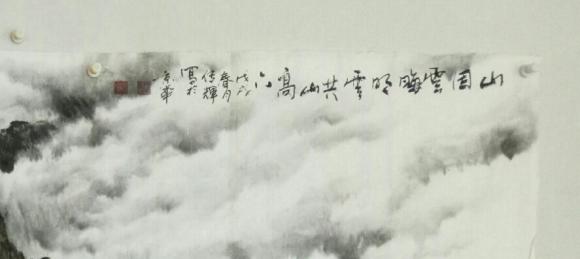 山因雲晦明雲共山高下
戊戌
春月
傳輝
寫於
京華